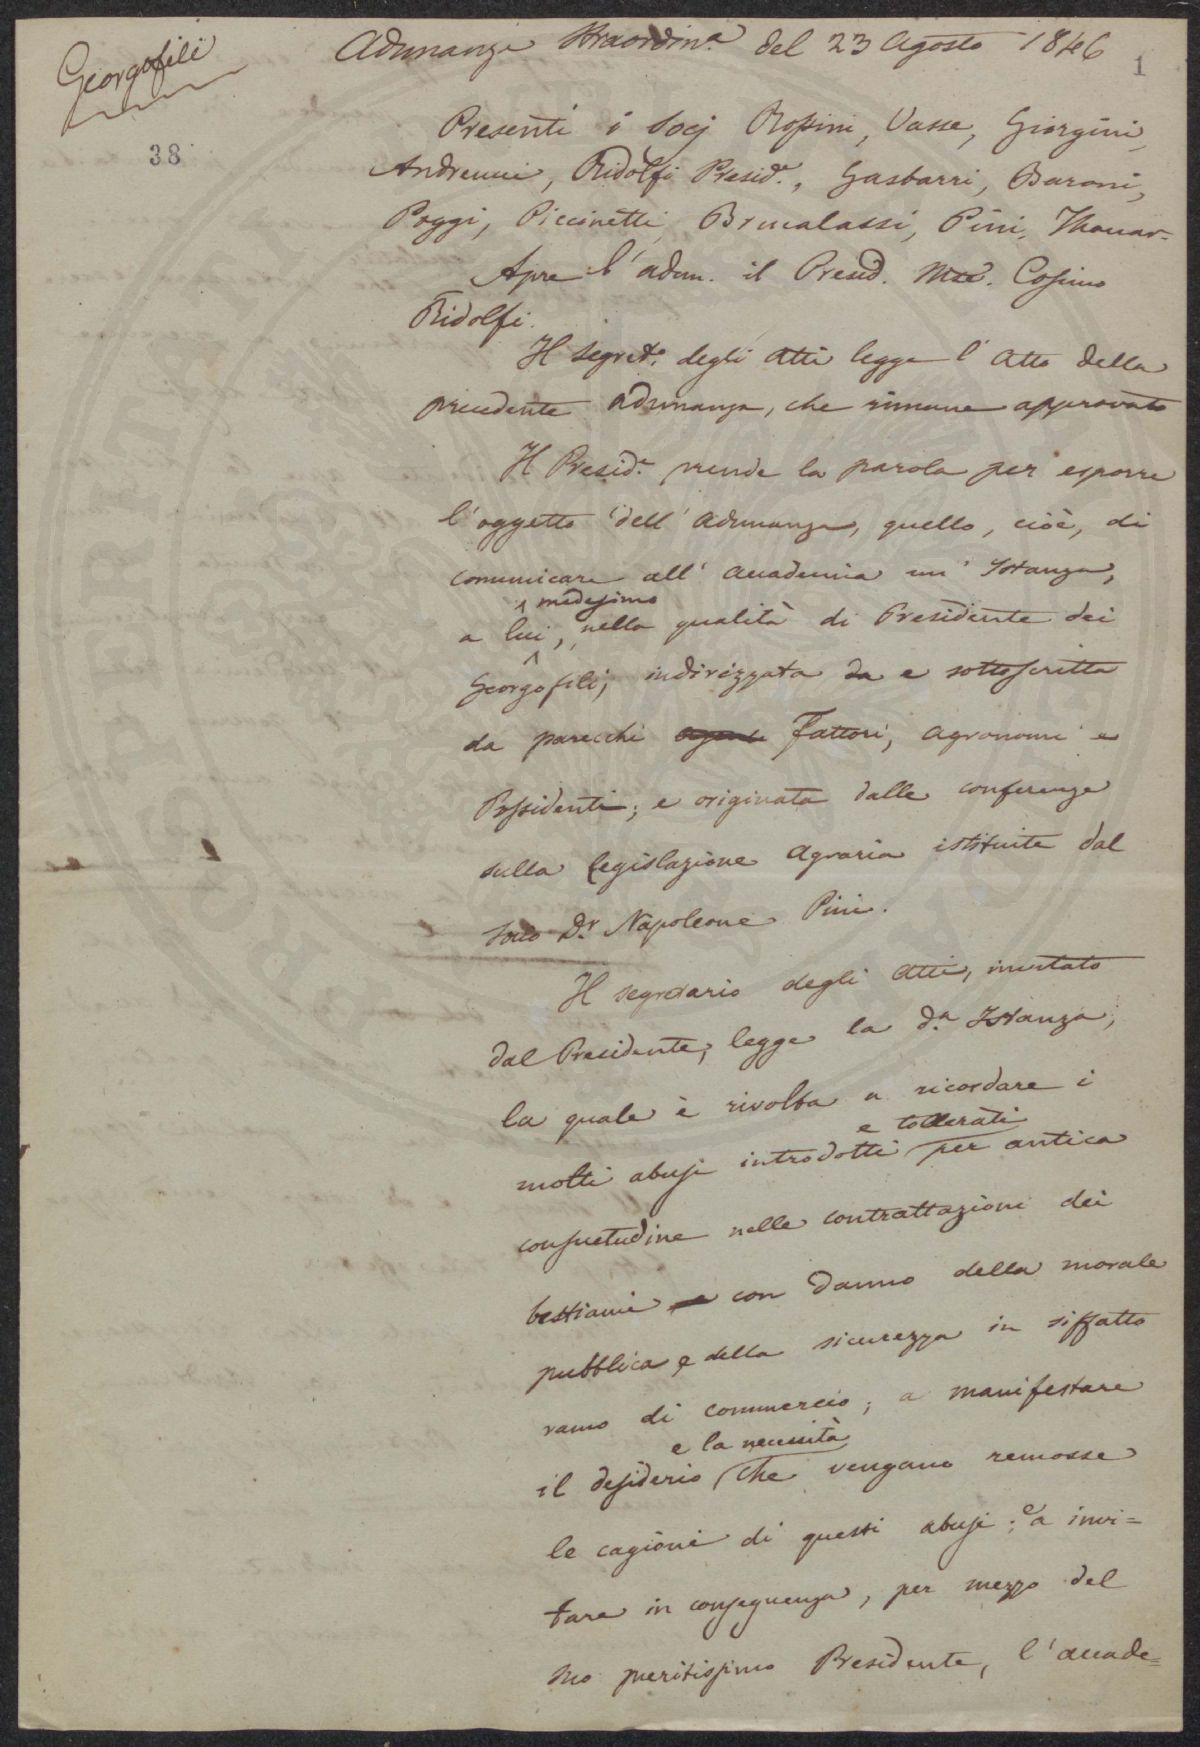 Georgofili
Adunanza Straordin.ª del 23 Agosto 1846
1
38
Presenti i Socj Rossini, Vasse, Giorgini,
Andreucci, Ridolfi Presid.e, Gasbarri, Baroni,
Poggi, Piccinetti, Brucalassi, Pini, Thouar.
Apre l'adun. il Presid. Mse. Cosimo
Ridolfi.
Il Segret.º degli Atti legge l'Atto della
precedente adunanza, che rimane approvato
Il Presid.e prende la parola per esporre
l'oggetto dell'adunanza, quello, cioè, di
comunicare all'Accademia un'Istanza,
a lui medesimo, nella qualità di Presidente dei
Georgofili, indirizzata da e sottoscritta
da parecchi agenti Fattori, agronomi e
Possidenti; e originata dalle conferenze
sulla legislazione Agraria istituite dal
socio Dr. Napoleone Pini.
Il segretario degli Atti, invitato
dal Presidente, legge la d.ª Istanza,
la quale è rivolta a ricordare i
molti abusi introdotti e tollerati per antica
consuetudine nelle contrattazioni dei
bestiami con danno della morale
pubblica e della sicurezza in siffatto
ramo di commercio; a manifestare
il desiderio e la necessità che vengano remosse
le cagioni di questi abusi; e a invi=
tare in conseguenza, per mezzo del
suo meritissimo Presidente, l'accade=